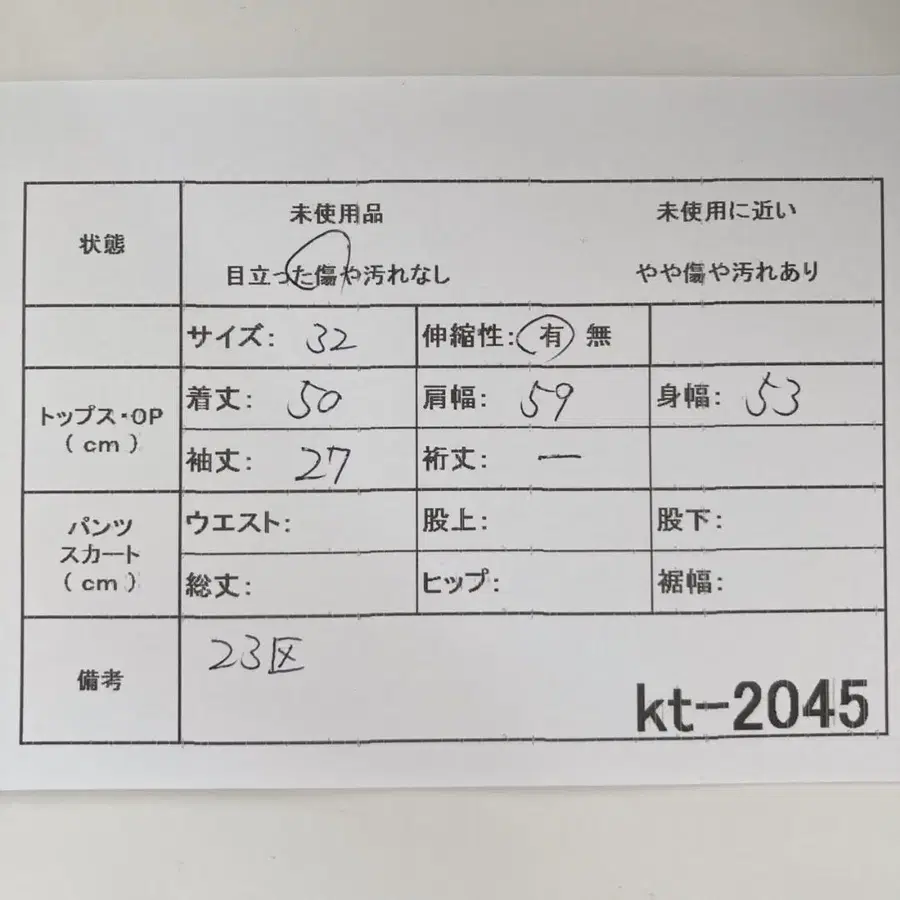 状態
未使用品 未使用に近い
目立った傷や汚れなし やや傷や汚れあり
サイズ: 32 伸縮性: 有 無
トップス・OP
(cm)
着丈: 50 肩幅: 59 身幅: 53
袖丈: 27 裄丈: ー
パンツ
スカート
(cm)
ウエスト: 股上: 股下:
総丈: ヒップ: 裾幅:
備考
23区
kt-2045